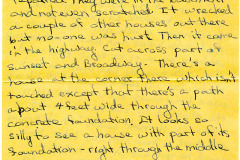 repaired. They were in the basement
and not even scratched. It wrecked
a couple of other houses out there
but no-one was hurt. Then it came
in the highway. Cat across part of
sunset and Broadway. There's a
house at the corner there which isn't
touched except that there's a path
about 4 feet wide through the
concrete foundation. It looks so
silly to see a house with part of its
foundation - right through the middle